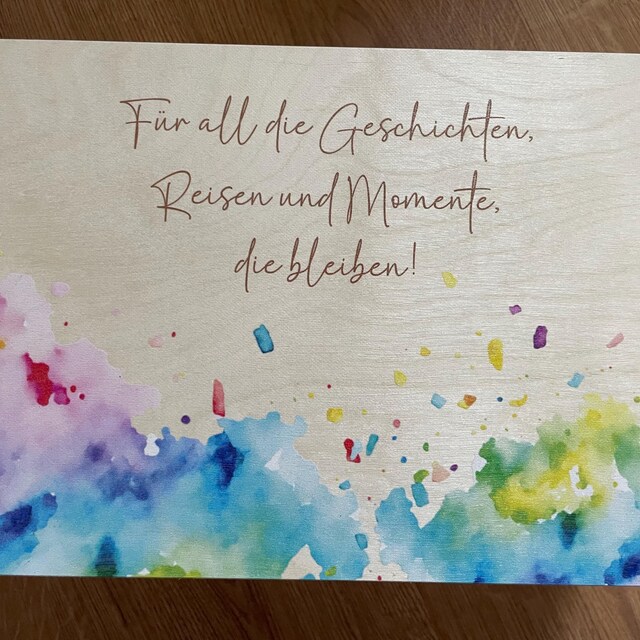 Für all die Geschichten,
Reisen und Momente,
die bleiben!